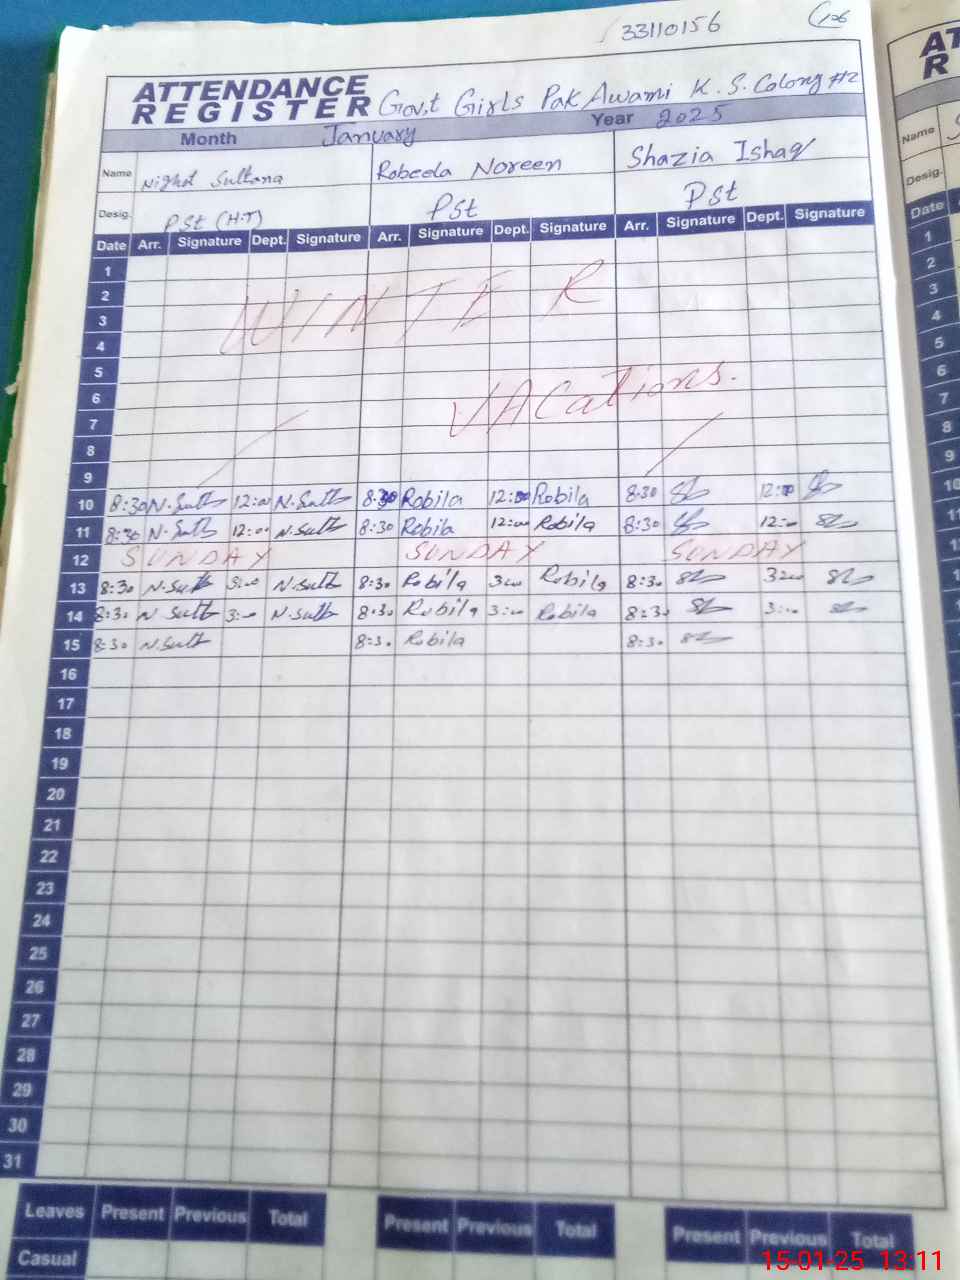 33110156
ATTENDANCE
REGISTER Gov,t Girls Pak Awami K. S. Colony #2
Month January Year 2025
Name Nighat Sultana Robeela Noreen Shazia Ishaq
Desig. PSt (H.T) PSt PSt
Date Arr. Signature Dept. Signature Arr. Signature Dept. Signature Arr. Signature Dept. Signature
1
2 WINTER
3
4
5
6 VACations.
7
8
9
10 8:30 N.Sult 12:00 N.Sult 8:30 Robila 12:00 Robila 8:30 12:00
11 8:30 N.Sult 12:00 N.Sult 8:30 Robila 12:00 Robila 8:30 12:00
12 SUNDAY SUNDAY SUNDAY
13 8:30 N.Sult 3:00 N.Sult 8:30 Robila 3:00 Robila 8:30 3:00
14 8:30 N.Sult 3:00 N.Sult 8:30 Robila 3:00 Robila 8:30 3:00
15 8:30 N.Sult 8:30 Robila 8:30
16
17
18
19
20
21
22
23
24
25
26
27
28
29
30
31
Leaves Present Previous Total Present Previous Total Present Previous Total
Casual
15-01-25 13:11
AT
R
Name
Desig.
Date
1
2
3
4
5
6
7
8
9
10
11
12
13